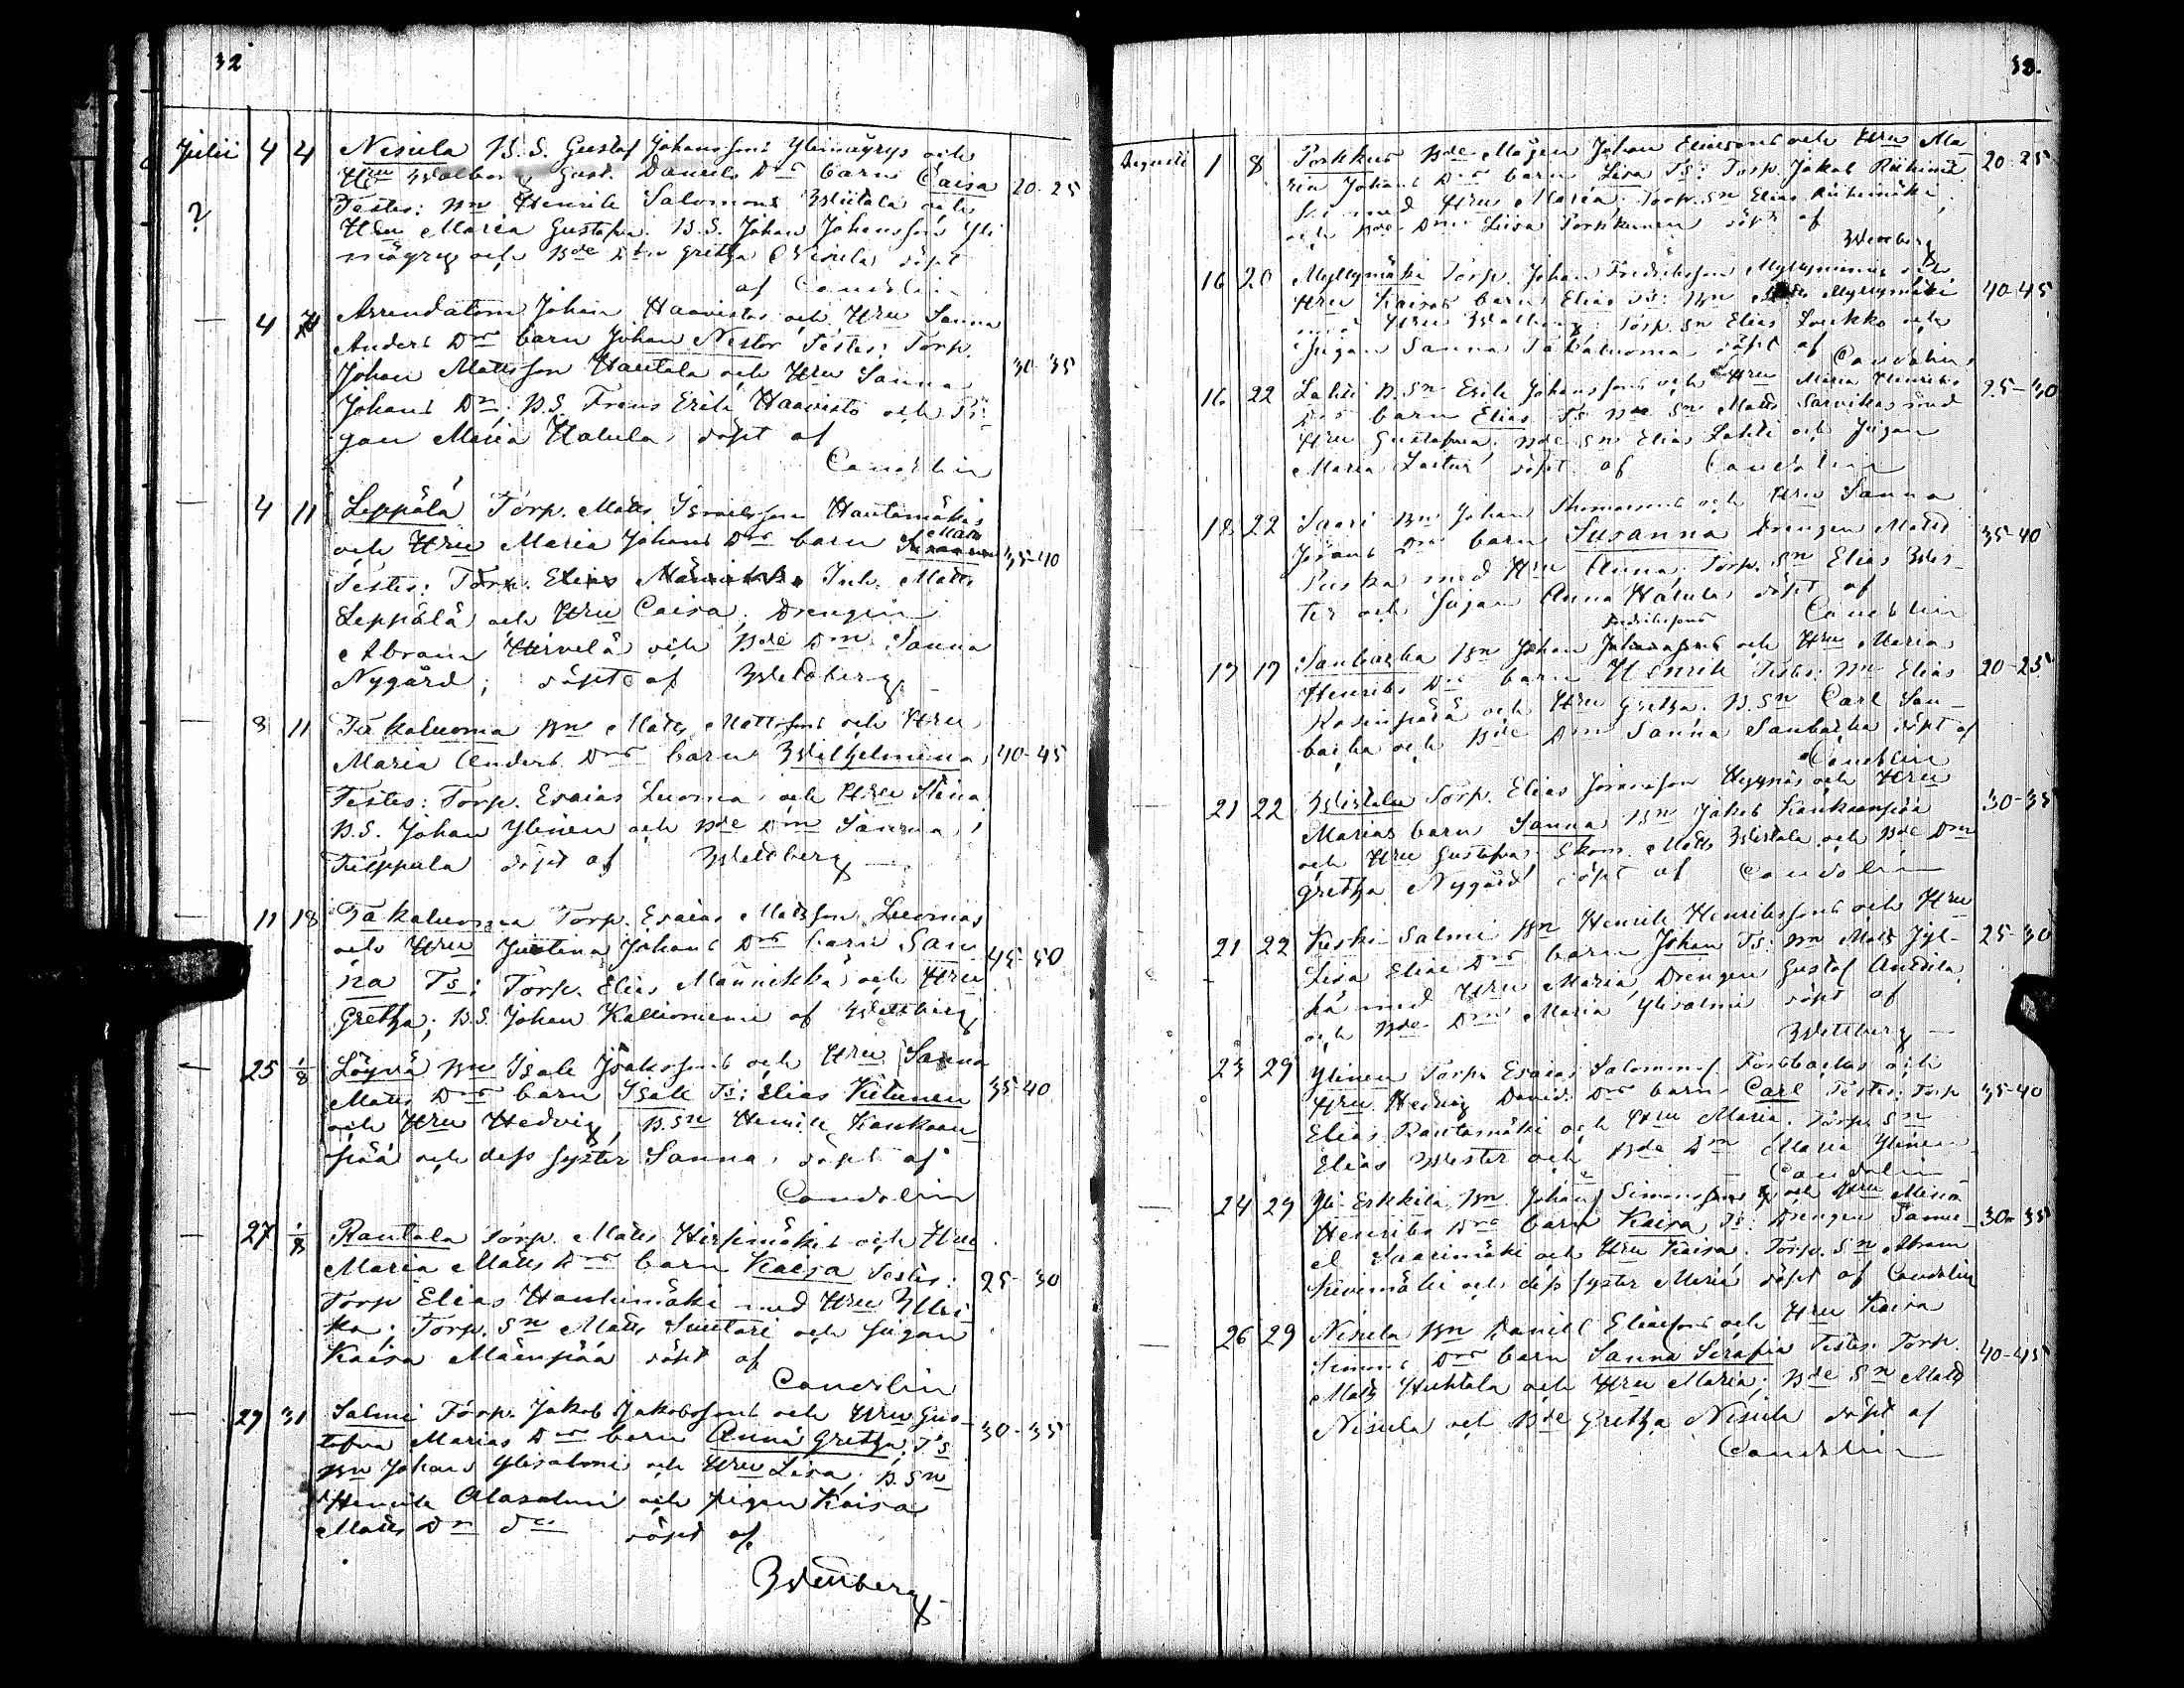 32
Julii 4 4 Nisula B. S. Gustaf Johanssons Ylimäyrys och
Hru Walborg Gust. Daniels Dtrs barn Caisa 20-25
Testes: Bn Henrik Salomons Wiitala och
? Hru Maria Gustafva. B. S. Johan Johansson Yli
mäyry och Bde Dtr Gretha Nisula döpt
af Candelin
4 Arrendatorn Johan Haavistos och Hru Sanna
Anders Drs barn Johan Nestor Testes: Torp.
Johan Mattsson Hautala och Hru Sanna 30-35
Johans Dr; B. S. Frans Erik Haavisto och Pi-
gan Maria Hatula döpt af
Candelin
4 11 Leppälä Torp. Matts Israelsson Hautamäkis
och Hru Maria Johans Drs barn Matts 35-40
Testes: Torp. Elias Männikkö Inh. Matts
Leppälä och Hru Caisa, Drengen
Abram Hirvelä och Bde Drn Sanna
Nygård; döpt af Wettberg
8 11 Takaluoma Bn Matts Mattssons och Hru
Maria Anders Drs barn Wilhelmina 40-45
Testes: Torp. Esaias Luoma och Hru Stina
B. S. Johan Ylinen och Bde Drn Sanna
Tulppala döpt af Wettberg
11 18 Takaluoma Torp. Esaias Mattsson Luomas
och Hru Justina Johans Drs barn San
na Ts: Torp. Elias Männikkö och Hru 45-50
Gretha; B. S. Johan Kallioniemi af Wettberg
25 1/8 Löyvä Bn Isak Isakssons och Hru Sanna
Matts Drs barn Isak Ts: Elias Kitunen 35-40
och Hru Hedvig, B. Sn Henrik Kankaan
pää och dess syster Sanna, döpt af
Candelin
27 1/8 Rantala Torp. Matts Hirsimäkis och Hru
Maria Matts Drs barn Kaisa Testes: 25-30
Torp Elias Hautamäki med Hru Ulri
ka; Torp. Sn Matts Suutari och pigan
Kaisa Mäenpää döpt af
Candelin
29 31 Salmi Torp. Jakob Jakobssons och Hru Gus- 30-35
tafva Marias Drs barn Anna Gretha; Ts
Bn Johan Ylisalmi och Hru Lisa; B. Sn
Henrik Alasalmi och pigan Kaisa
Matts Dr do döpt af
Wettberg
33.
Augusti 1 8 Porkkus Bde Mågen Johan Eliassons och Hru Ma- 20-25
ria Johans Drs barn Lisa Ts: Torp. Jakob Riihimä
ki med Hru Maria; Torp. Sn Elias Riihimäki,
och Bde Drn Lisa Porkkunen döpt af
Wettberg
16 20 Myllymäki Torp. Johan Fredriksson Myllyniemis och
Hru Kaisas barn Elias Ts: Bn Myllymäki 40-45
med Hru Walborg; Torp. Sn Elias Loukko och
pigan Sanna Takaluoma döpt af Candelin
16 22 Lahti B. Sn Erik Johanssons och Hru Maria Henriks 25-30
Drs barn Elias Ts Bde Sn Matts Sarvikas med
Hru Gustafva; Bde Sn Elias Lahti och pigan
Maria Laitur döpt af Candelin
18 22 Saari Bn Johan Thomassons och Hru Sanna
Johans Drs barn Susanna Drengen Matts 35-40
Puska med Hru Anna; Torp. Sn Elias Wes-
ter och pigan Anna Hatula döpt af
Candelin
17 17 Saubacka Bn Johan Fredrikssons och Hru Maria
Henriks Drs barn Henrik Testes: Bn Elias 20-25
Kosenpää och Hru Gretha. B. Sn Carl Sau-
backa och Bde Drn Sanna Saubacka döpt af
Candelin
21 22 Wistala Torp. Elias och Hru
Marias barn Sanna Bn Jakob Kankaanpää 30-35
och Hru Gustafva; Skom. Matts Wistala och Bde Drn
Gretha Nygård döpt af Candelin
21 22 Keski-Salmi Bn Henrik Henrikssons och Hru
Lisa Elias Drs barn Johan Ts: Bn Matts Jyl- 25-30
hä med Hru Maria, Drengen Gustaf Anttila
och Bde Drn Maria Ylisalmi döpt af
Wettberg
23 29 Ylinen Torp. Esaias Salomons Forsbackas och
Hru Hedvig Davids Drs barn Carl Testes: Torp 35-40
Elias Rautamäki och Hru Maria. Torp. Sn
Elias Wester och Bde Drn Maria Ylinen
Candelin
24 29 Yli-Erkkilä Bn Johan Simonssons och Hru Maria
Henriks Drs barn Kaisa Ts: Drengen Samu- 30-35
el Saarimäki och Hru Kaisa. Torp. Sn Abram
Kivimäki och dess syster Maria döpt af Candelin
26 29 Nisula Bn Daniel Eliassons och Hru Kaisa
Simons Drs barn Sanna Serafia Testes: Torp. 40-45
Matts Huhtala och Hru Maria; Bde Sn Matts
Nisula och Bde Gretha Nisula döpt af
Candelin